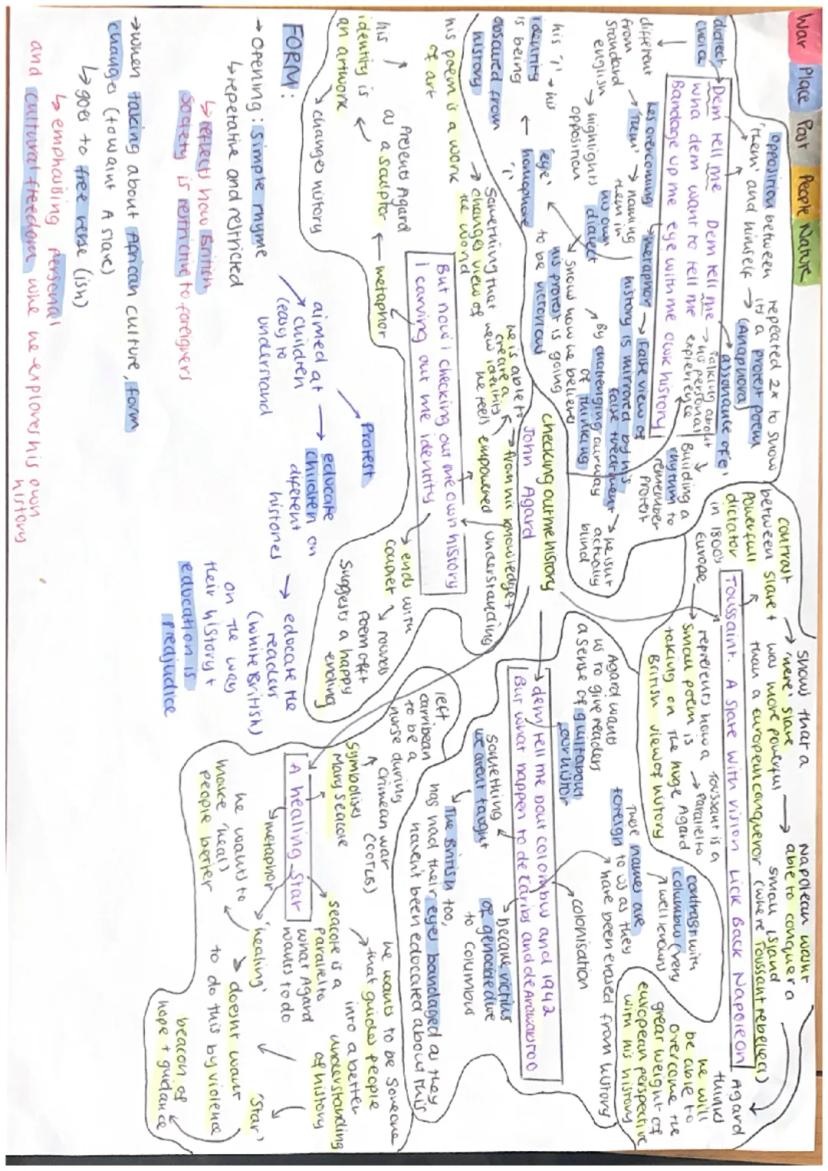 War Place Past People Nature
dialect
choice
opposition between
'them' and himself
repeated 2x to show
its a protest poem
(Anaphora)
assonance of 'e'
Dem tell me Dem tell me
wha dem want to tell me
Bandage up me eye with me own history
talking about
his personal
experience
Building a
rhythm to
remember
protest
different
from
standard
english
'them' → naming
them in
his own
dialect
highlights
opposition
metaphor → False view of
history is mirrored by his
false treatment → he isnt
actually
blind
By challenging our way
of thinking
show how he believes
his protest is going
to be victorious
his 'i' → his
identity
is being
obscured from
history
'eye'
'i'
homophone
checking out me history
John Agard
contrast
between slave +
powerfull
dictator
in 1800s
Europe
shows that a
'mere' slave
was more powerful
than a european conqueror
Napolean wasnt
able to conquer a
small island
(where Toussaint rebelled)
Toussaint. A slave with vision Lick Back Napoleon
Agard
thinks
he will
be able to
overcome the
great weight of
european perspective
with his history
Toussaint is a
parallel to
Agard
represents how a
small poem is
taking on the huge
British view of history
contrast with
columbus (very
well known)
These names are
foreign to us as they
have been erased from history
Agard wants
us to give readers
a sense of
dem tell me bout columbus and 1942
But what happen to de Caribs and de Arawaks too
colonisation
something
we arent taught
became victims
of genocide due
to Columbus
The British too,
has had their eyes bandaged as they
havent been educated about this
his poem is a work
of art
Something that
changes view of
the world
he is able to
create a
new identity
he feels empowered
from his knowledge +
understanding
But now i checking out me own history
I carving out me identity
metaphor
Presents Agard
as a sculptor
his
identity is
an artwork
changes history
ends with
couplet → rounds
poem off
suggests a happy
ending
left
carribean
to be a
nurse during
Crimean war
symbolises
Mary Seacole
A healing Star
metaphor
'healing'
he wants to
make (heal)
people better
doesnt want
to do this by violence
Seacole is a
parallel to
what Agard
wants to do
he wants to be someone
that guides people
into a better
understanding
of history
'Star'
beacon of
hope + guidance
FORM:
→ opening: simple rhyme
↳ repetative and restricted
↳ reflects how British
society is restrictive to foreigners
aimed at
children
(easy to
understand
Protest
educate
children on
diferent
histories
educate the
readers
(white British)
on the way
their history +
education is
predjudice
→ when taking about African culture, form
changes (towaint A slave)
↳ goes to free verse (ish)
↳ emphasising personal
and cultural freedom while he explores his own
history